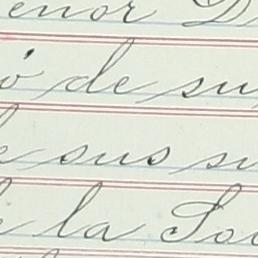 enor D
ó de su
e sus su
e la So